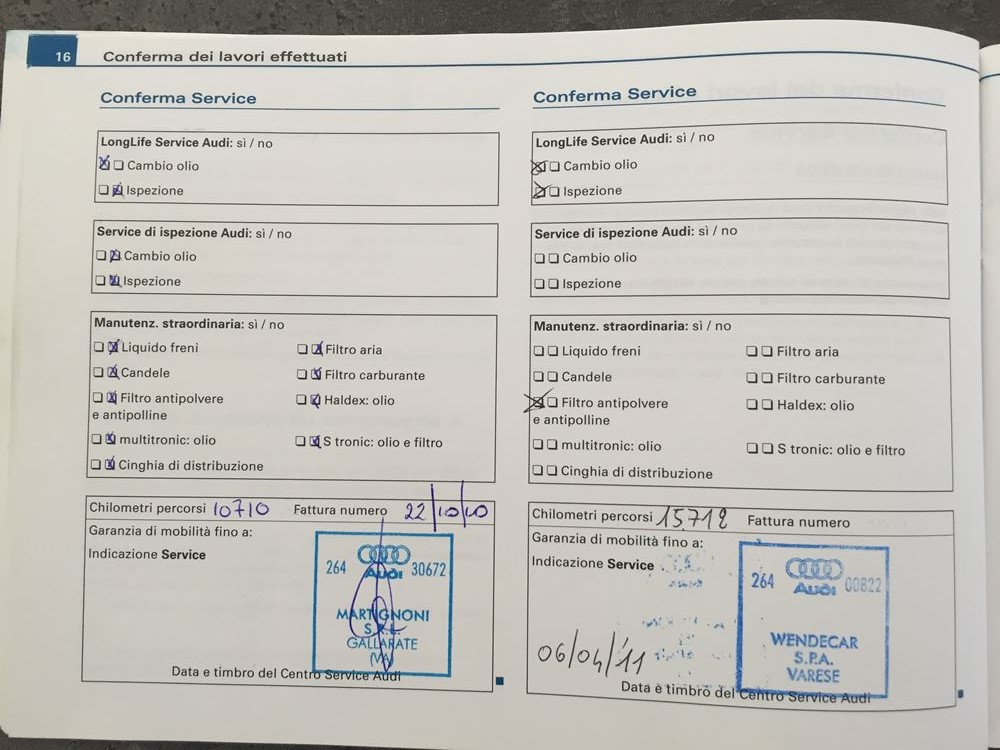 16 Conferma dei lavori effettuati
Conferma Service
LongLife Service Audi: sì / no
Cambio olio
Ispezione
Service di ispezione Audi: sì / no
Cambio olio
Ispezione
Manutenz. straordinaria: sì / no
Liquido freni Filtro aria
Candele Filtro carburante
Filtro antipolvere Haldex: olio
e antipolline
multitronic: olio S tronic: olio e filtro
Cinghia di distribuzione
Chilometri percorsi 10710 Fattura numero 22/10/10
Garanzia di mobilità fino a:
Indicazione Service
264 Audi 30672
MARTIGNONI
S.R.L.
GALLARATE
(VA)
Data e timbro del Centro Service Audi
Conferma Service
LongLife Service Audi: sì / no
Cambio olio
Ispezione
Service di ispezione Audi: sì / no
Cambio olio
Ispezione
Manutenz. straordinaria: sì / no
Liquido freni Filtro aria
Candele Filtro carburante
Filtro antipolvere Haldex: olio
e antipolline
multitronic: olio S tronic: olio e filtro
Cinghia di distribuzione
Chilometri percorsi 15.712 Fattura numero
Garanzia di mobilità fino a:
Indicazione Service
264 Audi 00822
WENDECAR
S.P.A.
VARESE
06/04/'11
Data e timbro del Centro Service Audi